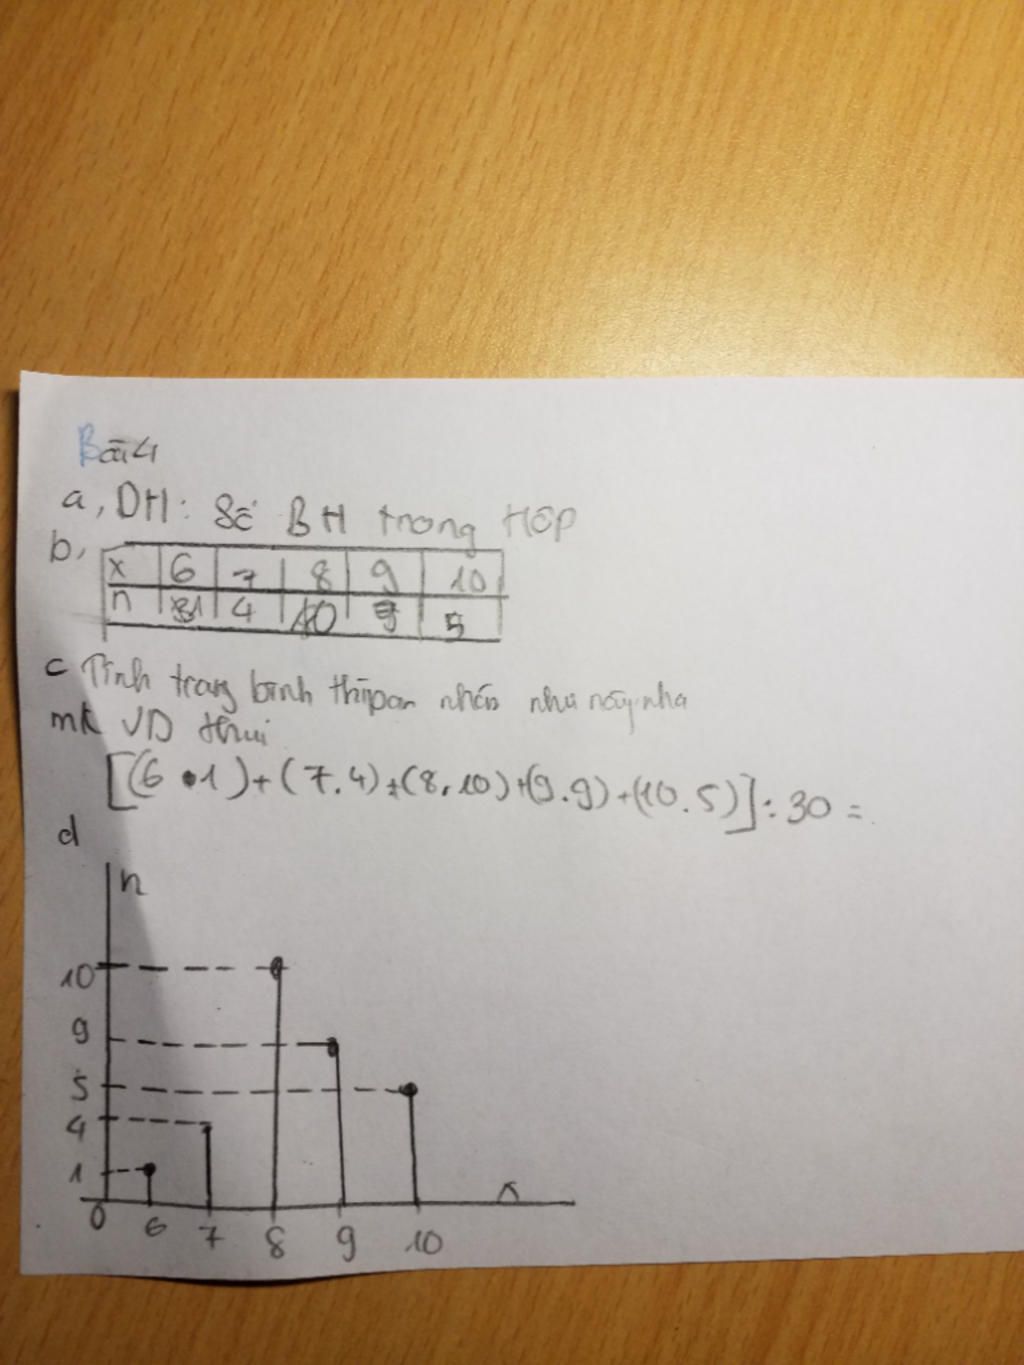 Bài 4
a, DH: Số BH trong Hộp
b,
x 6 7 8 9 10
n 1 4 10 9 5
c Tính trung bình thì nhân như này nha
mk VD thui
[(6 . 1) + (7.4) + (8.10) + (9.9) + (10.5)] : 30 =
d
n
10
9
5
4
1
0 6 7 8 9 10
x